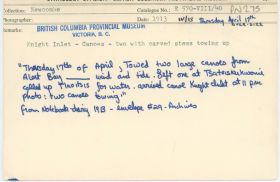 Collection: Newcombe Catalogue No.: E 590-VIII/40 PN 275
Date 1913 Thursday April 17th
BRITISH COLUMBIA PROVINCIAL MUSEUM
VICTORIA, B.C.
Knight Inlet - Canoes - two with carved stems towing up
"Thursday 17th of April, Towed two large canoes from
Alert Bay wind and tide.
called up for water. arrived Knight Inlet at 11 pm
photo: two canoes towing"
From Notebook-diary 1913 - envelope #29 - Archives